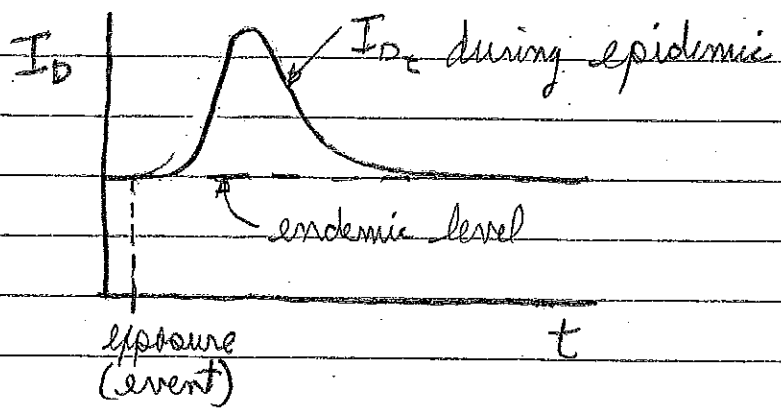 I_D
I_Dt during epidemic
endemic level
exposure
(event)
t